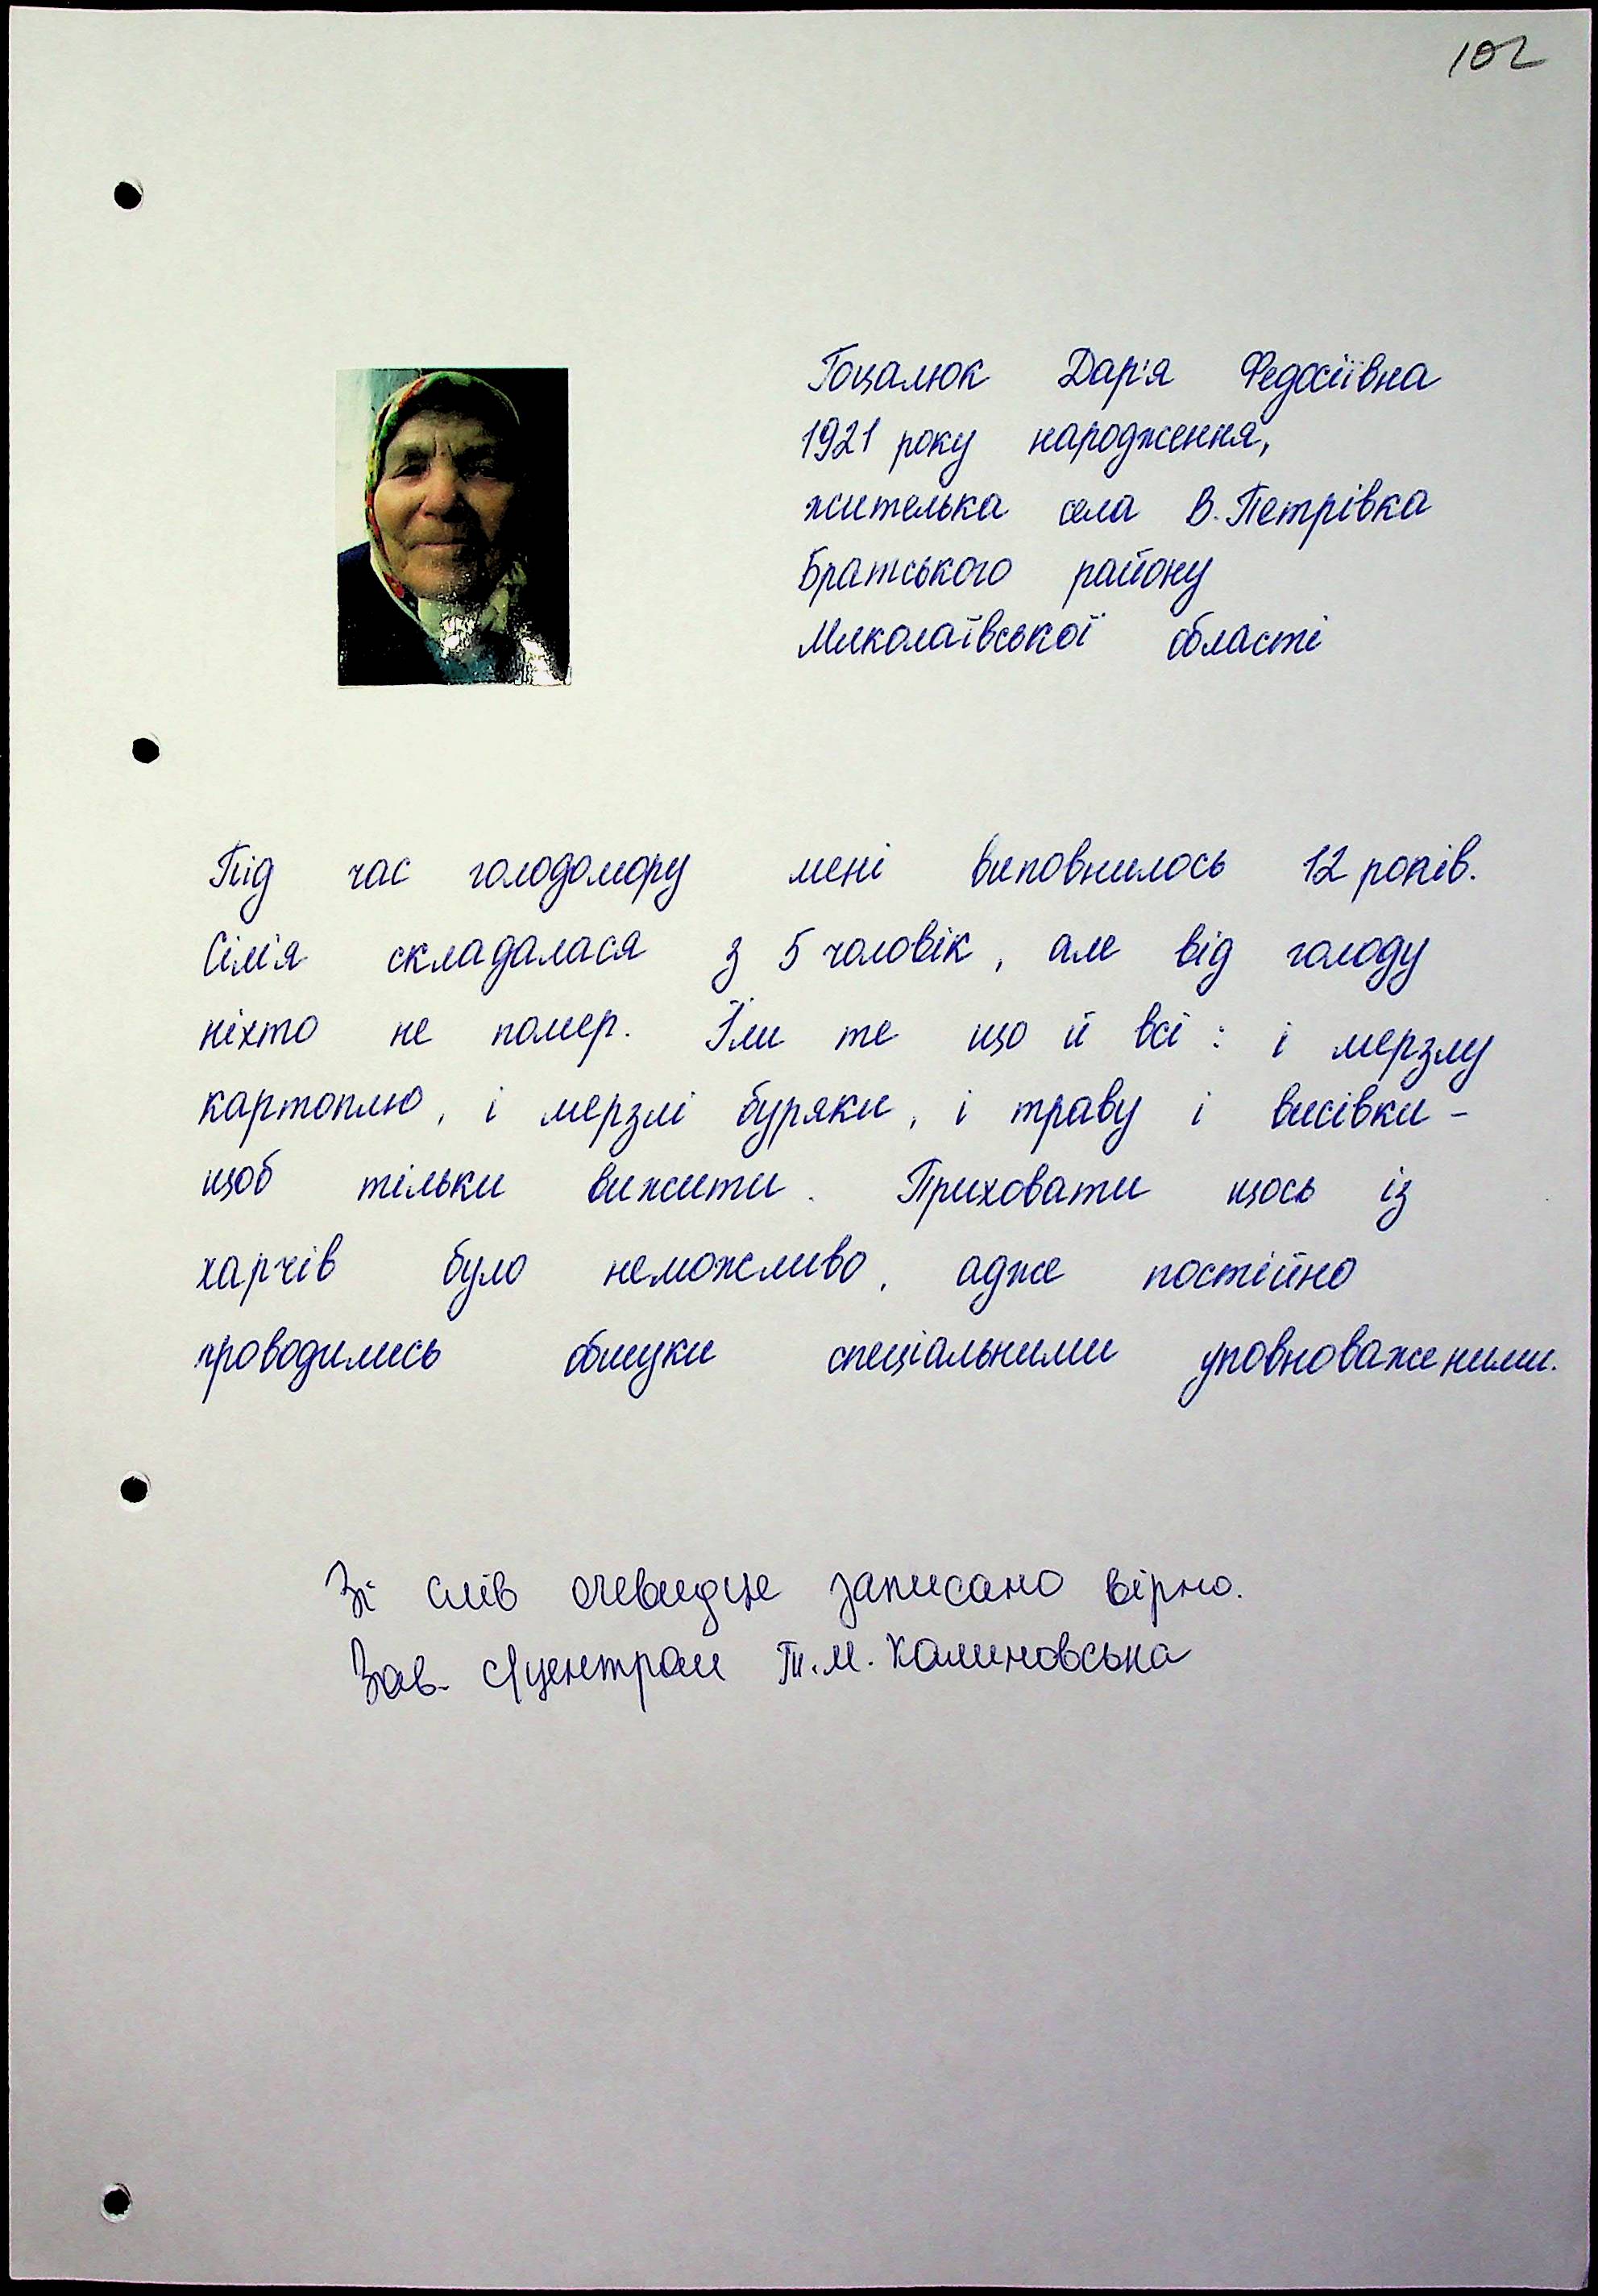 102
Гоцалюк Дар'я Федосіївна
1921 року народження,
жителька села В. Петрівка
Братського району
Миколаївської області
Під час голодомору мені виповнилось 12 років.
Сім'я складалася з 5 чоловік, але від голоду
ніхто не помер. Їли те що й всі: і мерзлу
картоплю, і мерзлі буряки, і траву і висівки -
щоб тільки вижити. Приховати щось із
харчів було неможливо, адже постійно
проводились обшуки спеціальними уповноваженими.
Зі слів очевидця записано вірно.
Зав. Т.М. Калиновська